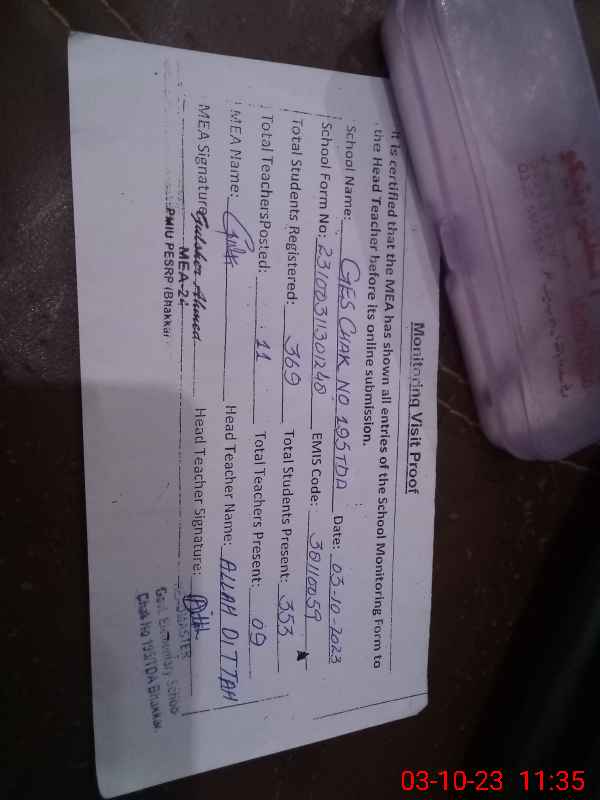 Monitoring Visit Proof
It is certified that the MEA has shown all entries of the School Monitoring Form to
the Head Teacher before its online submission.
School Name: GES CHAK NO 195TDA Date: 03-10-2023
School Form No: 23100311301248 EMIS Code: 38110059
Total Students Registered: 369 Total Students Present: 353
Total TeachersPosted: 11 Total Teachers Present: 09
MEA Name: Head Teacher Name: ALLAH DITTAH
MEA Signature Gulsher Ahmed Head Teacher Signature:
MEA-24
PMIU PESRP (Bhakkar
Govt. Elementary School
Chak No 195/TDA Bhakkar.
03-10-23 11:35